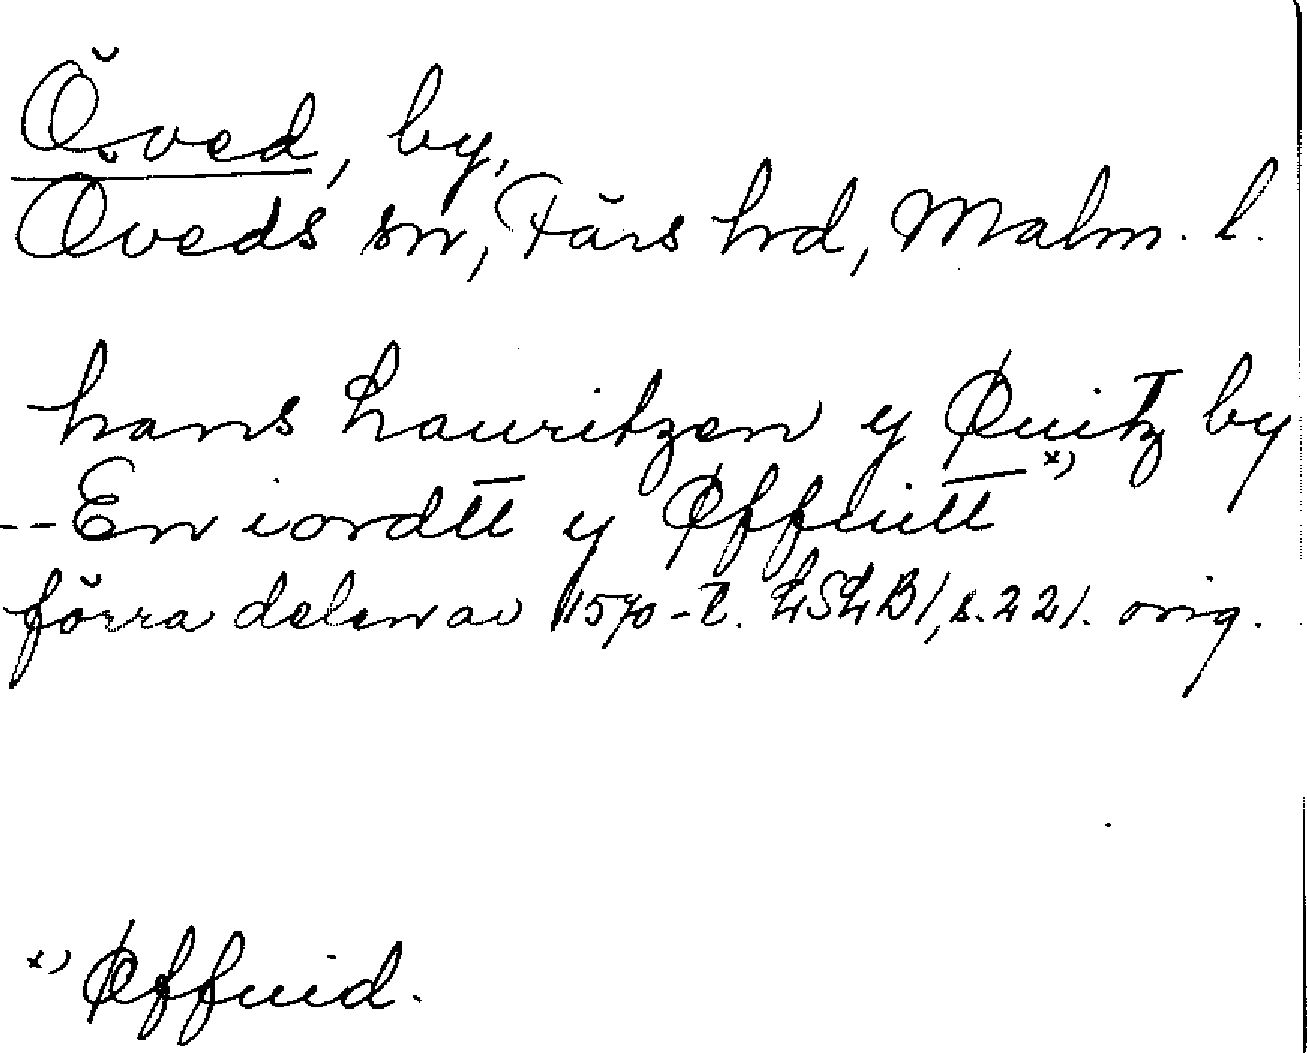 Öved, by,
Öveds sn, Färs hrd, Malm. l.
hans Lauritzen y Øuitz by
-- En iordtt y Øffuitt x)
förra delen av 1570-t. LSLB1, s. 221. orig.
x) Øffuid.